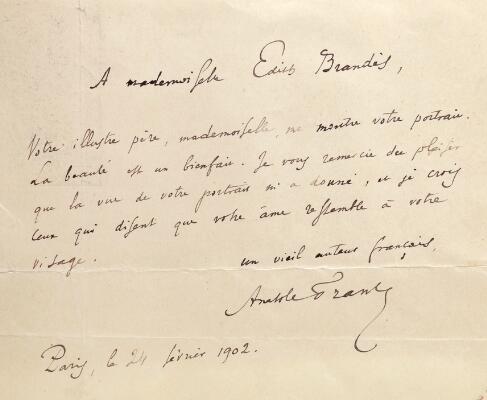 A mademoiselle Edith Brandès,
Votre illustre père, mademoiselle, me montre votre portrait.
La beauté est un bienfait. Je vous remercie du plaisir
que la vue de votre portrait m'a donné, et je crois
ceux qui disent que votre âme ressemble à votre
visage.
un vieil auteur français,
Anatole France
Paris, le 24 février 1902.